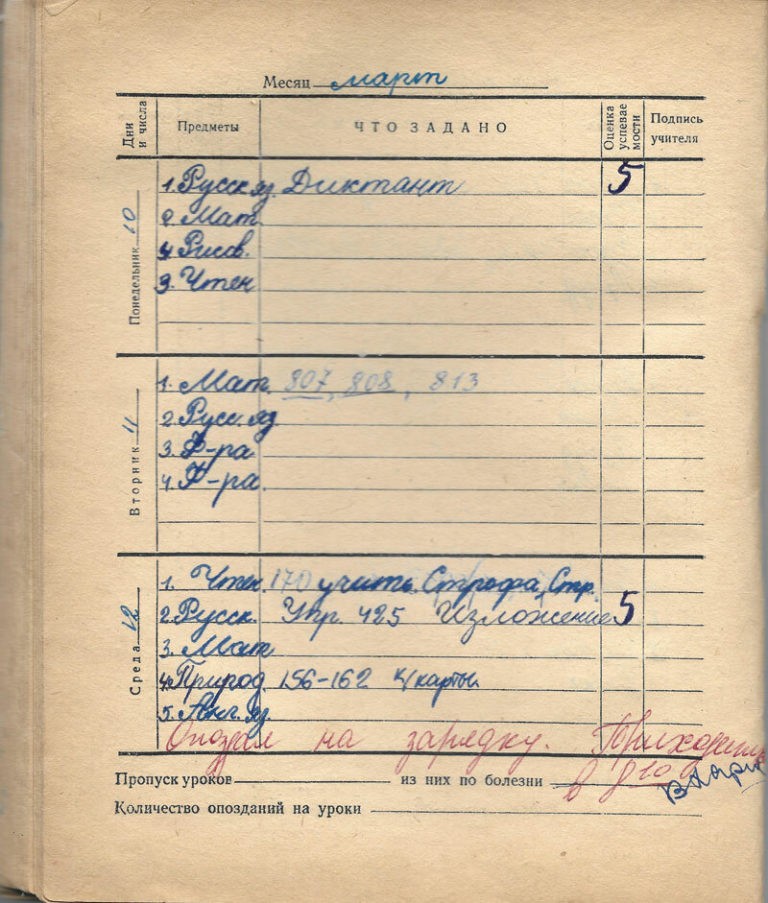 Месяц март
Дни и числа Предметы ЧТО ЗАДАНО Оценка успевае мости Подпись учителя
Понедельник 10
1. Русск яз. Диктант 5
2. Мат.
4. Рисов.
3. Чтен
Вторник 11
1. Мат. 807, 808, 813
2. Русс. яз
3. Ф-ра
4. Ф-ра.
Среда 12
1. Чтен. 170 учить. Строфа, Стр.
2. Русск. Упр. 425 Изложение 5
3. Мат
4. Природ. 156-162 к/карты.
5. Анг. яз.
Опоздал на зарядку. Приходить
в 8 10
Пропуск уроков из них по болезни
Количество опозданий на уроки